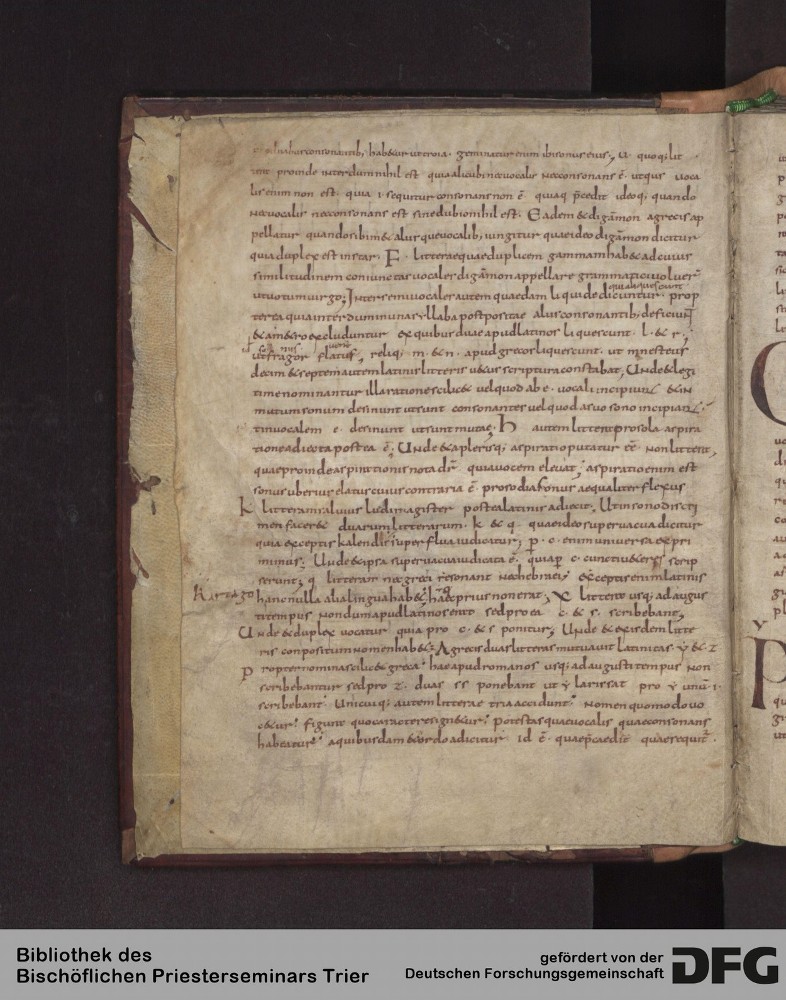 habetur ut troia · geminatur enim ibi sonus eius; U · quoq; lit
proinde interdum nihil est quia alicubi nec vocalis nec consonans ē · ut qus uoca
lis enim non est · quia · i · sequitur consonans non ē · quia q p̄cedit ideoq; quando
nec vocalis nec consonans est sine dubio nihil est · Eadem & digāmon a grecis ap
pellatur quando sibim& aliis que vocalib; iungitur quae ideo digāmon dicitur
quia duplex est instar · F · litterae quae duplicem gammam hab& ad cuius
similitudinem coniunctas vocales digāmon appellare grammatici voluer̄
ut votum virgo; Inter semivocales autem quaedam liquide dicuntur · prop
terea quia interdum in una syllaba postpositae aliis consonantib; deficiunt
& a m&ro excluduntur ex quibus duae apud latinos liquescunt · l · & r ·
ut fragor flatus, reliq; m · & n · apud grecos liquescunt · ut mnesteus
decim & septem autem latinis litteris uetus scriptura constabat, Unde & legi
time nominantur illa ratione scilic& uel quod ab e · vocali incipiunt & in
mutum sonum desinunt ut sunt consonantes uel quod a suo sono incipiant
tin vocalem e · desinunt ut sunt mutae; H autem littera pro sola aspira
tione adiecta postea ē; Unde & a plerisq; aspiratio putatur eē · non littera,
quae proinde aspirationis nota dr̄ · quia vocem elevat; aspiratio enim est
sonus uberius elatus cuius contraria ē · prosodia sonus aequaliter flexus
K litteram salvius ludi magister postea latinis adiecit, Ut in sono discri
men facer& duarum litterarum · k & q · quae ideo supervacua dicitur
quia exceptis kalendis superflua iudicatur; p · c · enim universa expri
mimus; Unde & ipsa supervacua iudicata ē · quia p c · cuncti veteres scrip
serunt; q litteram nec greci resonant nec hebraei; exceptis enim latinis
Kartago
hanc nulla alia lingua hab& haec prius non erat, X littera usq; ad augus
ti tempus nondum apud latinos erat sed pro ea c · & s · scribebant,
Unde & duplex vocatur quia pro c · & s ponitur, Unde & ex eisdem litte
ris conpositum nomen hab&; A grecis duas litteras mutuavit latinitas · y & z
Propter nomina scilic& greca · hae apud romanos usq; ad augusti tempus non
scribebantur sed pro z · duas ss ponebant ut y larissat pro y unū · i ·
scribebant · Unicuiq; autem litterae tria accidunt · nomen quomodo vo
c&ur · figura quo caractere sign&ur · potestas quae vocalis quae consonans
habeatur · a quibusdam & ordo adicitur id ē · quae p̄caedit quae sequit̄ ·
Bibliothek des
Bischöflichen Priesterseminars Trier
gefördert von der
Deutschen Forschungsgemeinschaft
DFG